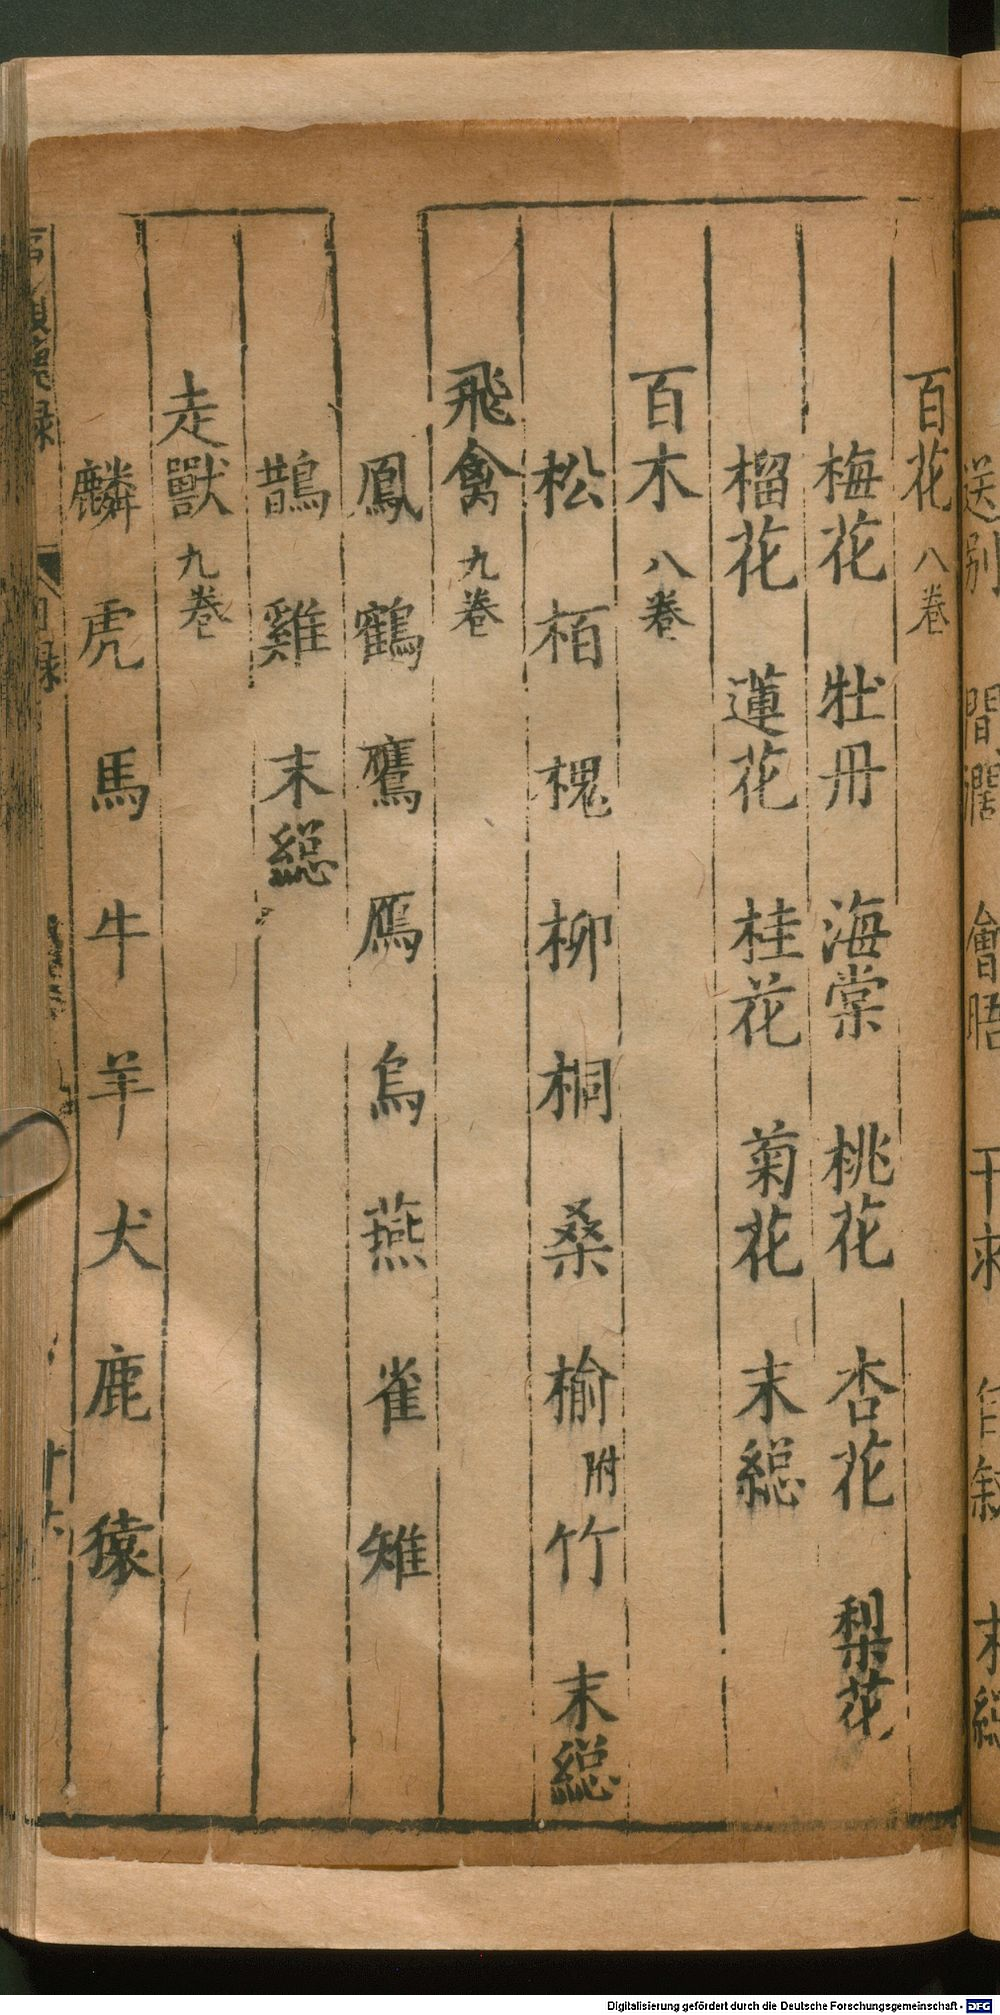 百花 八卷
梅花 牡丹 海棠 桃花 杏花 梨花
榴花 蓮花 桂花 菊花 末總
百木 八卷
松 栢 槐 柳 桐 桑 榆 附 竹 末總
飛禽 九卷
鳳 鶴 鷹 鴈 烏 燕 雀 雉
鵲 雞 末總
走獸 九卷
麟 虎 馬 牛 羊 犬 鹿 猿
Digitalisierung gefördert durch die Deutsche Forschungsgemeinschaft - DFG